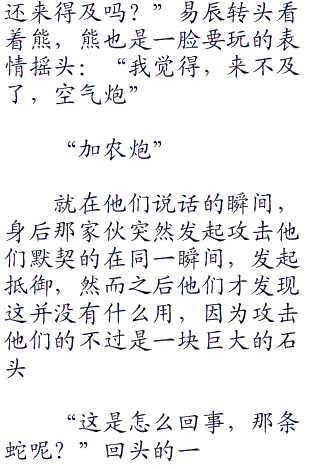 还来得及吗？”易辰转头看
着熊，熊也是一脸要玩的表
情摇头：“我觉得，来不及
了，空气炮”
“加农炮”
就在他们说话的瞬间，
身后那家伙突然发起攻击他
们默契的在同一瞬间，发起
抵御，然而之后他们才发现
这并没有什么用，因为攻击
他们的不过是一块巨大的石
头
“这是怎么回事，那条
蛇呢？”回头的一